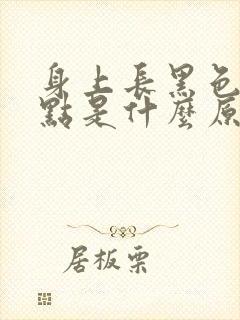 身上長黑色
點是什麼原
居板栗